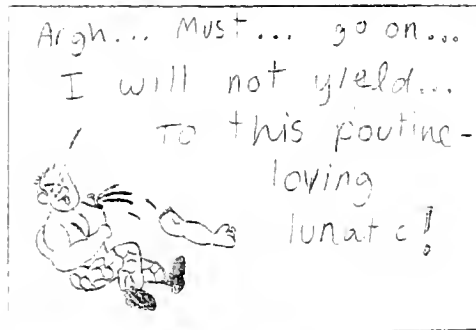 Argh... Must... go on...
I will not yield...
to this poutine-
loving
lunatic!